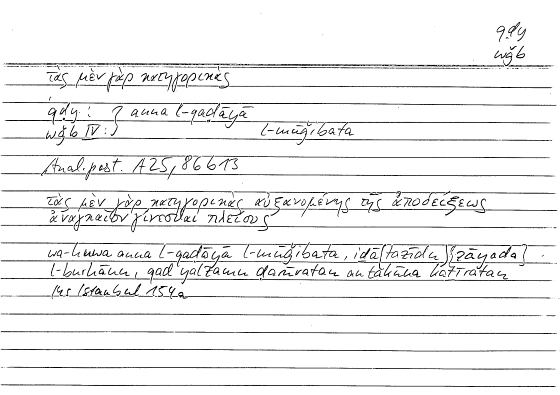 qḍy
wǧb
τὰς μὲν γὰρ κατηγορικὰς
qḍy : } anna l-qaḍāyā
wǧb IV : } l-mūǧibata
Anal. post. A 25, 86 b 13
τὰς μὲν γὰρ κατηγορικὰς αὐξανομένης τῆς ἀποδείξεως
ἀναγκαῖον γίνεσθαι πλείους
wa-huwa anna l-qaḍāyā l-mūǧibata, iḏā [tazīdu] {zāyada}
l-burhānu, qad yalzamu ḍarūratan an takūna kaṯīratan
Ms Istanbul 154a